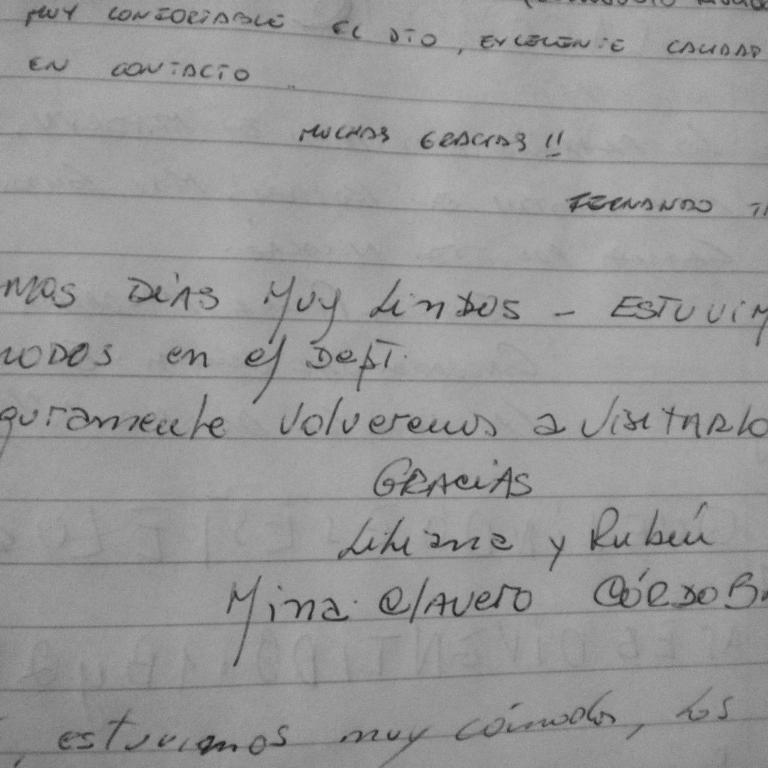 MUY CONFORTABLE EL DTO, EXCELENTE CALIDAD
EN CONTACTO
MUCHAS GRACIAS !!
FERNANDO
MOS DÍAS MUY LINDOS - ESTUVIM
MODOS en el DEPT.
guramente volveremos a VISITARLO
GRACIAS
Liliana y Rubén
Mina Clavero CÓRDOBA
, estuvimos muy cómodos, los